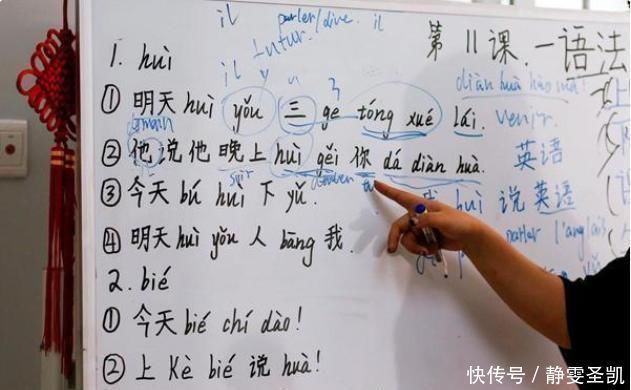 il parler/dire. il
futur.
第11课.一语法
1. huì
il
diàn huà hào mǎ!
① 明天 huì yǒu 三 ge tóng xué lái. venir.
② 他说他晚上 huì gěi 你 dá diàn huà. 英语
soir
③ 今天 bú huì 下 yǔ. huì 说 英语
parler l'anglais
④ 明天 huì yǒu 人 bāng 我.
2. bié
① 今天 bié chí dào!
② 上 Kè bié 说 huà!
快传号 / 静雯圣凯